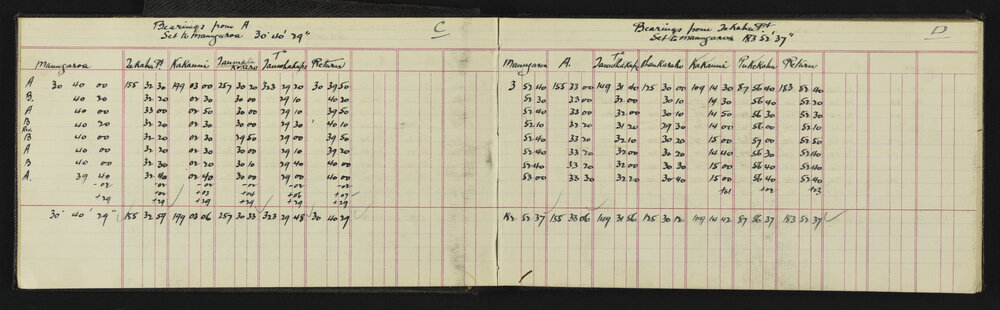 Bearings from A.
Set to Maungaroa 30° 40' 29"
C
Maungaroa Tekaha Pt Kakanui Korero T" Return
A 30 40 00 155 32 30 199 03 00 257 30 20 323 29 20 30 39 50
B. 40 20 32 20 02 30 30 00 29 10 40 20
A 40 00 33 00 02 50 30 10 29 10 39 50
B 40 20 32 20 02 30 30 00 29 30 40 10
Rev.
B 40 00 32 20 02 30 29 50 29 00 39 50
A 40 00 32 20 02 20 30 00 29 10 39 20
B 40 00 32 30 02 20 30 10 29 40 40 00
A. 39 40 32 40 02 40 30 00 29 40 40 00
-02 -02 -02 -02 -02
+02 +03 +04 +06 +07
+29 +29 +29 +29 +29
30° 40' 29" 155 32 59 199 03 06 257 30 33 323 29 48 30 40 29
Bearings from Tekaha Pt.
Set to Maungaroa 183 52' 37"
D
Maungaroa A. T" Kakanui Pukekahu Return
3 52 40 155 33 00 149 31 40 125 30 00 109 14 30 87 56 40 183 52 40
52 30 33 00 32 00 30 10 14 30 56 40 52 20
52 40 33 00 32 00 30 10 14 50 56 30 52 40
52 10 33 20 31 20 29 30 14 00 56 00 52 10
52 40 33 20 32 10 30 20 15 00 57 00 52 50
52 40 33 20 32 00 30 20 14 40 56 30 52 40
52 40 33 20 32 00 30 30 15 00 56 40 52 40
53 00 33 30 32 20 30 40 15 00 56 40 52 40
+01 +02 +03
182 52 37 155 33 06 149 31 56 125 30 12 109 14 42 87 56 37 183 52 37